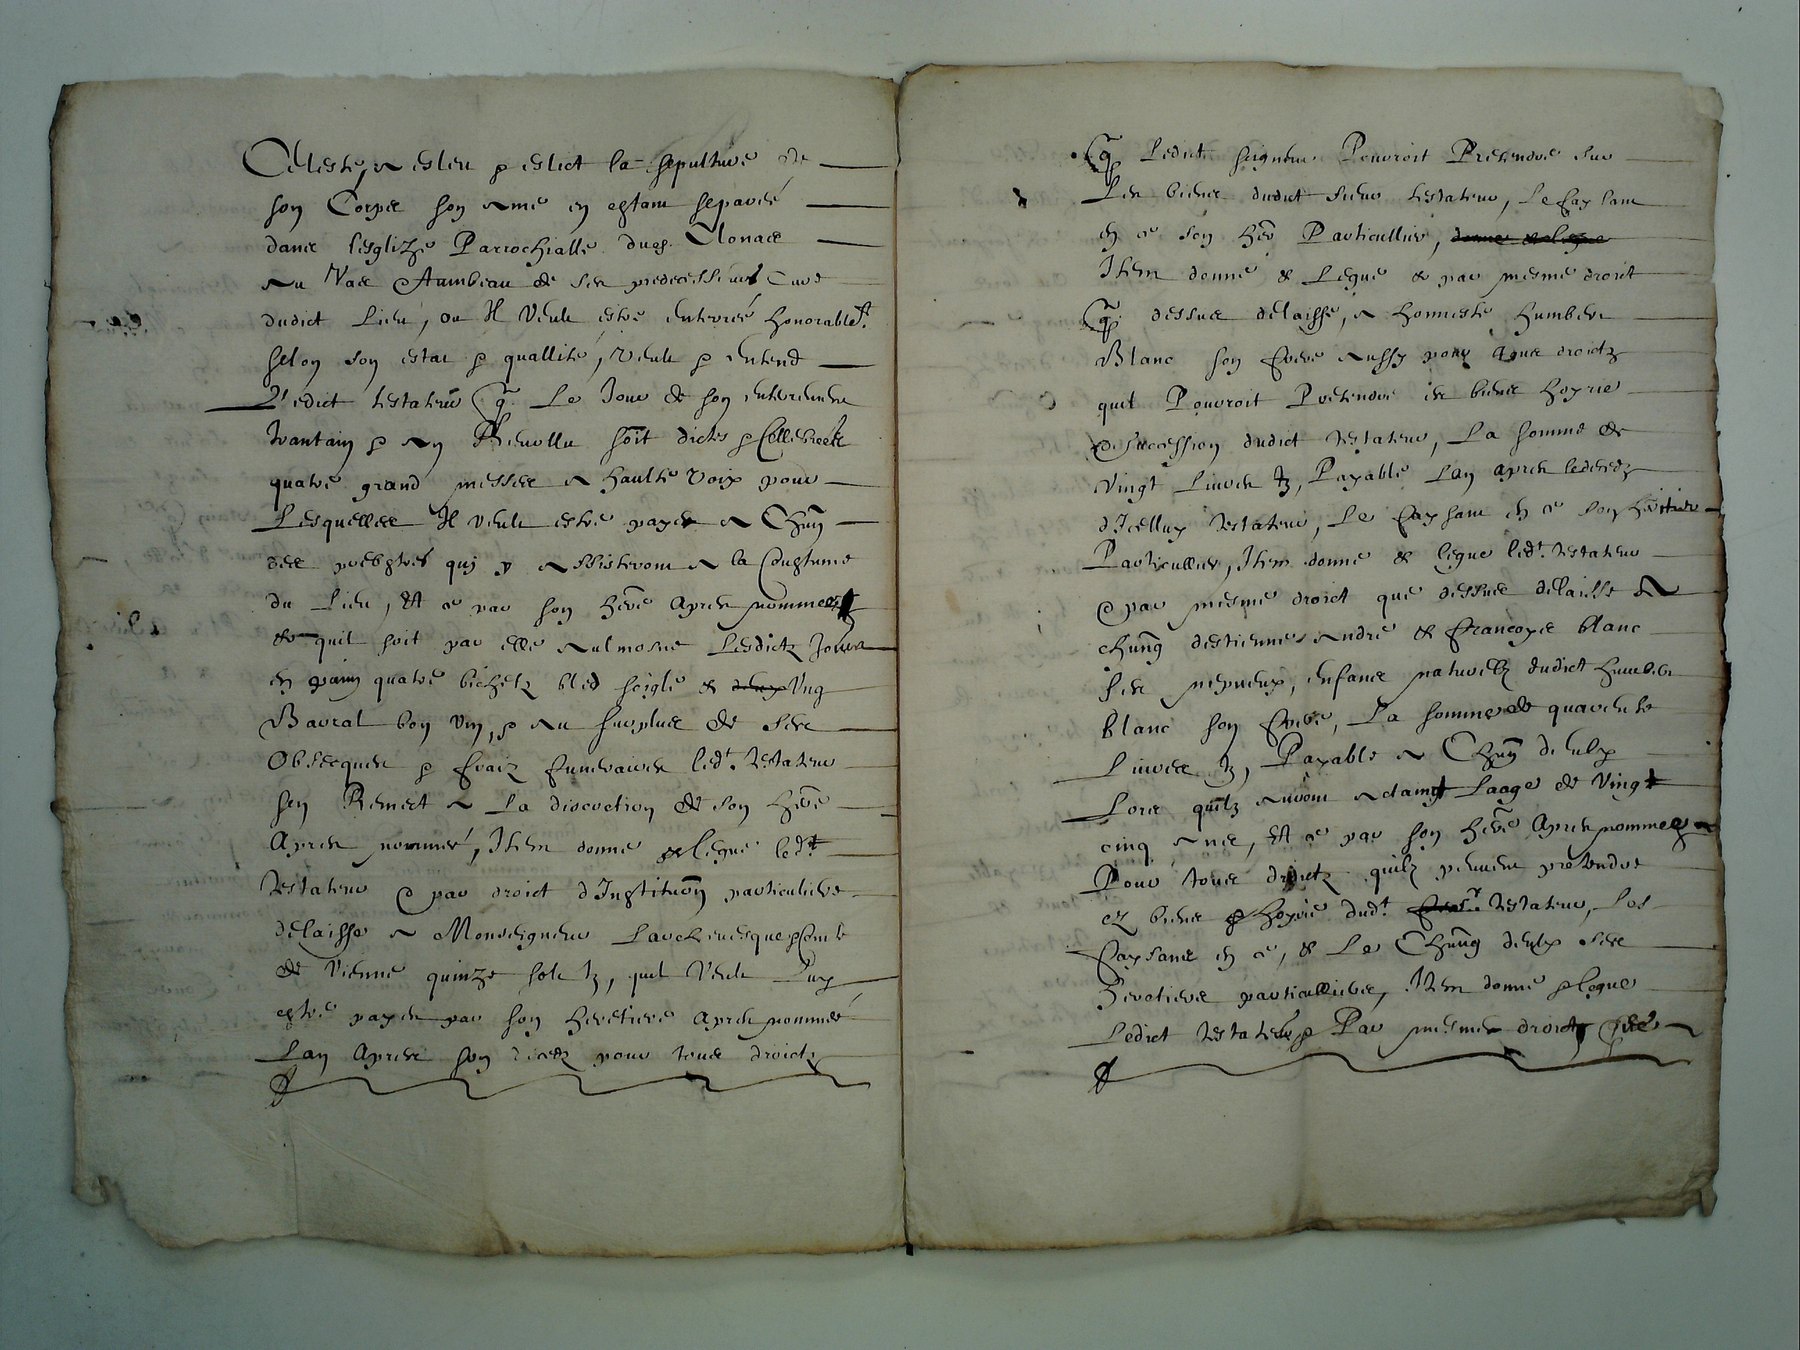 Celeste, a esleu & eslict la sepulture de
son Corps son ame en estant separée
dans lesglize Parrochialle dud. Clonas
au Vas & tumbeau de ses predecesseurs Curé
dudict Lieu, ou Il Veult estre enterré honorablet.
selon son estat & quallité, Veult & entend
Ledict testateur q. Le Jour de son enterrement
trantain & an Revollu soit dictes & cellebrées
quatre grand messes a haulte voix pour
Lesquelles Il veult estre payer a Chun
des prebstres quj y assisteront a la Coustume
du Lieu, Et ce par son here apres nommée
& quil soit par elle aulmosne Lesdictz Jours
en pain quatre bichetz bled seigle & deux Ung
Barral bon vin, & au surplus de ses
Obseques & fraiz funeraires led. testateur
sen Remect a La discretion de son here
Apres nommée, Item donne & legue led.
testateur & par droict dInstituon particuliere
delaisse a Monseigneur Larchevesque & Conte
de Vienne quinze solz tz, quil Veult Luy
estre payer par son heretiere apres nommée
Lan Apres son decedz pour tous droictz
q. Ledict seigneur Pouvroit Pretendre sur
Les biens dudict sieur testateur, Le faysant
en ce son her Particullier, donne & legue
Item donne & Legue & par mesme droict
q. dessus delaisse, a honneste humbert
Blanc son frere aussy pour tous droictz
quil Pouvroit Pretendre es biens hoyrie
& succession dudict testateur, La somme de
Vingt Livres tz, Payable Lan apres le decedz
dIcelluy testateur, Le faysant en ce son heritier
Particullier, Item donne & legue led. testateur
& par mesme droict que dessus delaisse A
chung destienne andre & francoys blanc
ses nepveux, enfans naturellz dudict humbert
blanc son frere, La somme de quarente
Livres tz, Payable a Chun deulx
Lors quilz auront actaingt Laage de Vingt
cinq ans, Et ce par son here Apres nommee
Pour tous droictz quilz peuvent pretendre
ez biens & hoyrie dud. testateur, Les
faysans en ce, & Le Chung deulx ses
heretiers particulliers, Item donne & legue
Ledict testateur & Par mesmes droict que